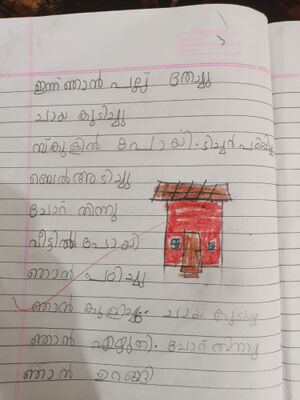 ഇന്ന് ഞാൻ പല്ല് തേച്ചു
ചായ കുടിച്ചു
സ്കൂളിൽ പോയി. ടീച്ചർ പഠിപ്പിച്ചു
ബെൽ അടിച്ചു
ചോറ് തിന്നു
വീട്ടിൽ പോയി
ഞാൻ പഠിച്ചു
ഞാൻ കുളിച്ചു. ചായ കുടിച്ചു
ഞാൻ എഴുതി. ചോറ് തിന്നു
ഞാൻ ഉറങ്ങി